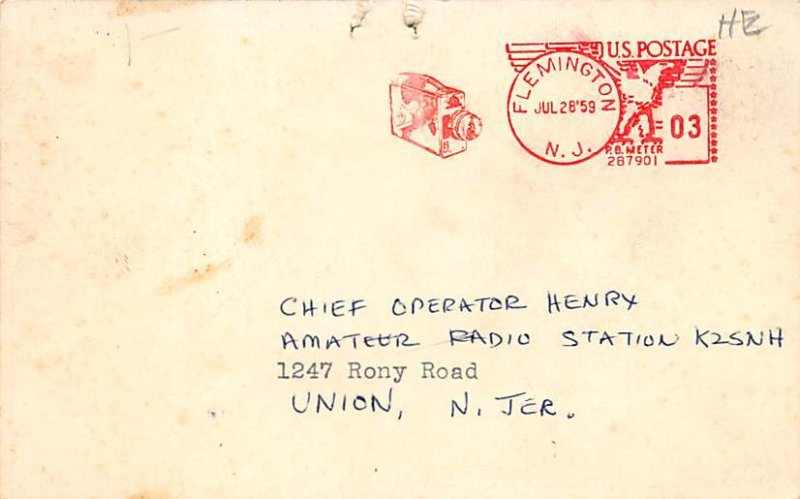 HE
U.S. POSTAGE
FLEMINGTON
JUL 28'59
N. J.
03
P.B. METER
287901
CHIEF OPERATOR HENRY
AMATEUR RADIO STATION K2SNH
1247 Rony Road
UNION, N. JER.